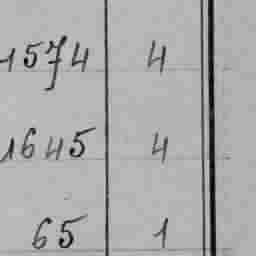 1574 4
1645 4
65 1